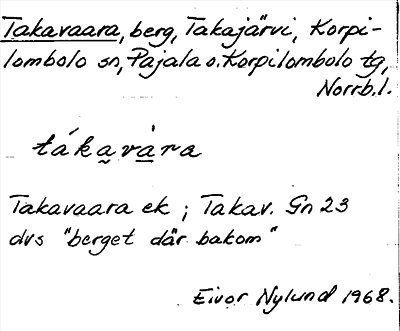 Takavaara, berg, Takajärvi, Korpi-
lombolo sn, Pajala o. Korpilombolo tg,
Norrb. l.
tákavàra
Takavaara ek ; Takav. Gn 23
dvs "berget där bakom"
Eivor Nylund 1968.